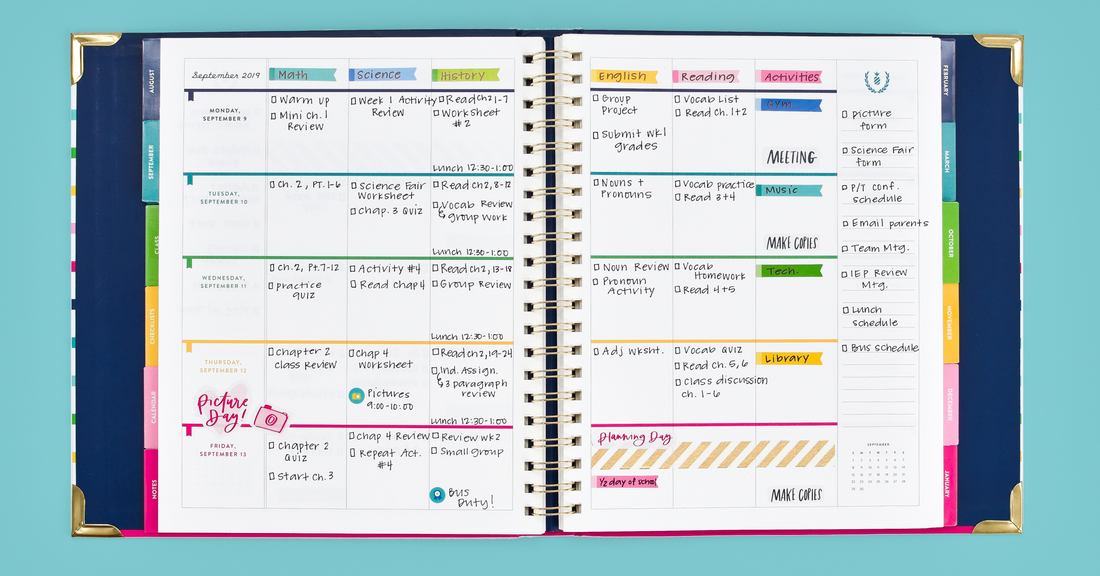 September 2019
Math
Science
History
MONDAY,
SEPTEMBER 9
□ Warm up
□ Mini Ch. 1
Review
□ Week 1 Activity
Review
□ Read ch 1-7
□ Worksheet
#2
Lunch 12:30-1:00
TUESDAY,
SEPTEMBER 10
□ Ch. 2, PT. 1-6
□ Science Fair
Worksheet
□ Chap. 3 Quiz
□ Read ch 2, 8-12
□ Vocab Review
↳ group work
Lunch 12:30-1:00
WEDNESDAY,
SEPTEMBER 11
□ Ch. 2, Pt. 7-12
□ practice
quiz
□ Activity #4
□ Read chap 4
□ Read ch 2, 13-18
□ Group Review
Lunch 12:30-1:00
THURSDAY,
SEPTEMBER 12
Picture
Day!
□ Chapter 2
class Review
□ Chap 4
Worksheet
Pictures
9:00-10:00
□ Read ch 2, 19-24
□ Ind. Assign.
↳ 3 paragraph
review
Lunch 12:30-1:00
FRIDAY,
SEPTEMBER 13
□ Chapter 2
Quiz
□ Start Ch. 3
□ Chap 4 Review
□ Repeat Act.
#4
□ Review wk 2
□ Small group
Bus
Duty!
English
Reading
Activities
□ Group
Project
□ Submit wk 1
grades
□ Vocab List
□ Read Ch. 1+2
Gym
MEETING
□ Nouns +
Pronouns
□ Vocab practice
□ Read 3+4
Music
MAKE COPIES
□ Noun Review
□ Pronoun
Activity
□ Vocab
Homework
□ Read 4+5
Tech.
□ Adj wksht.
□ Vocab Quiz
□ Read ch. 5, 6
□ Class discussion
ch. 1-6
Library
Planning Day
½ day of school
MAKE COPIES
□ picture
form
□ Science Fair
form
□ P/T conf.
schedule
□ Email parents
□ Team Mtg.
□ IEP Review
Mtg.
□ Lunch
schedule
□ Bus schedule
SEPTEMBER
AUGUST
SEPTEMBER
CLASS
CHECKLISTS
CALENDAR
NOTES
FEBRUARY
MARCH
OCTOBER
NOVEMBER
DECEMBER
JANUARY